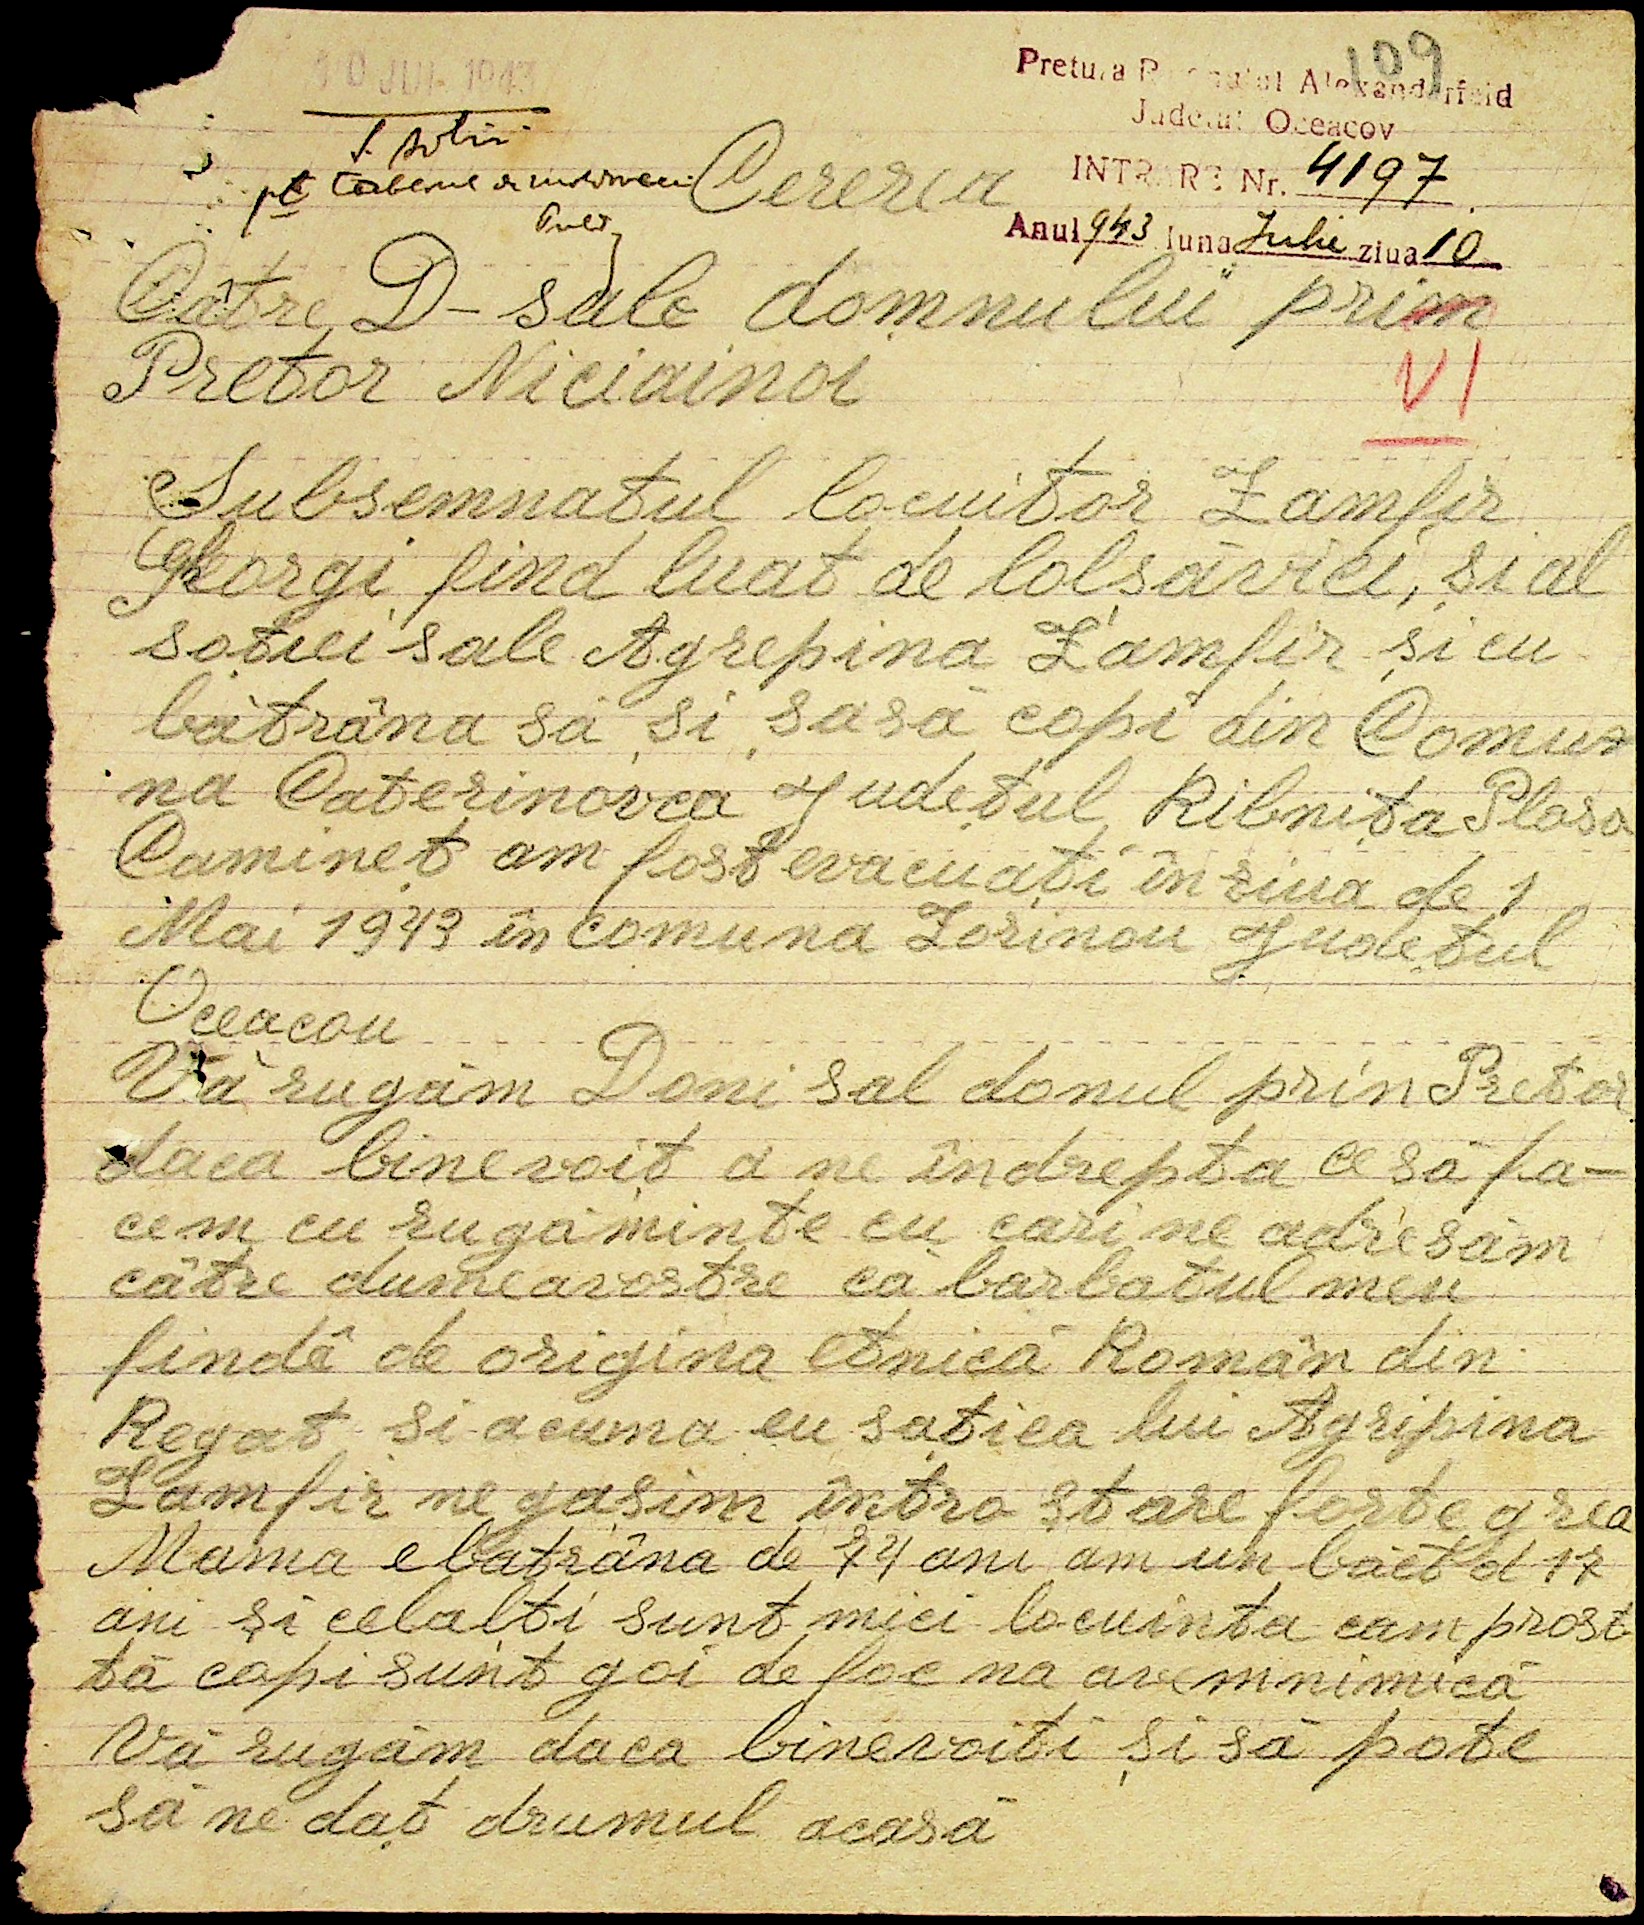 109
10 JUL 1943
Pretura Raionului Alexanderfeld
Judetul Oceacov
INTRARE Nr. 4197
Anul 943 luna Julie ziua 10
Cererea
Către D-sale domnului prim
VI
Pretor
Subsemnatul locuitor Zamfir
Georgi find luat de lolsăvici, și al
soției sale Agrepina Zamfir și cu
bătrâna să și șasă copi din Comun
na Caterinovca Județul Ribnița Plasa
Camineț am fost evacuați în ziua de 1
Mai 1943 în comuna Zorinou Județul
Oceacou
Vă rugăm Doni sal donul prin Pretor
daca binevoit a ne îndrepta ce să fa-
cem cu rugăminte cu cari ne adresăm
către dumeavostre că barbatul meu
findă de origina etnică Român din
Regat și acuma eu satiea lui Agripina
Zamfir ne gasim întro stare forte grea
Mama e batrâna de 74 ani am un băet d 17
ani și celalți sunt mici locuinta cam prost
tă copi sunt goi de foc na avem nimică
Vă rugăm daca binevoiti și să pote
să ne daț drumul acasă